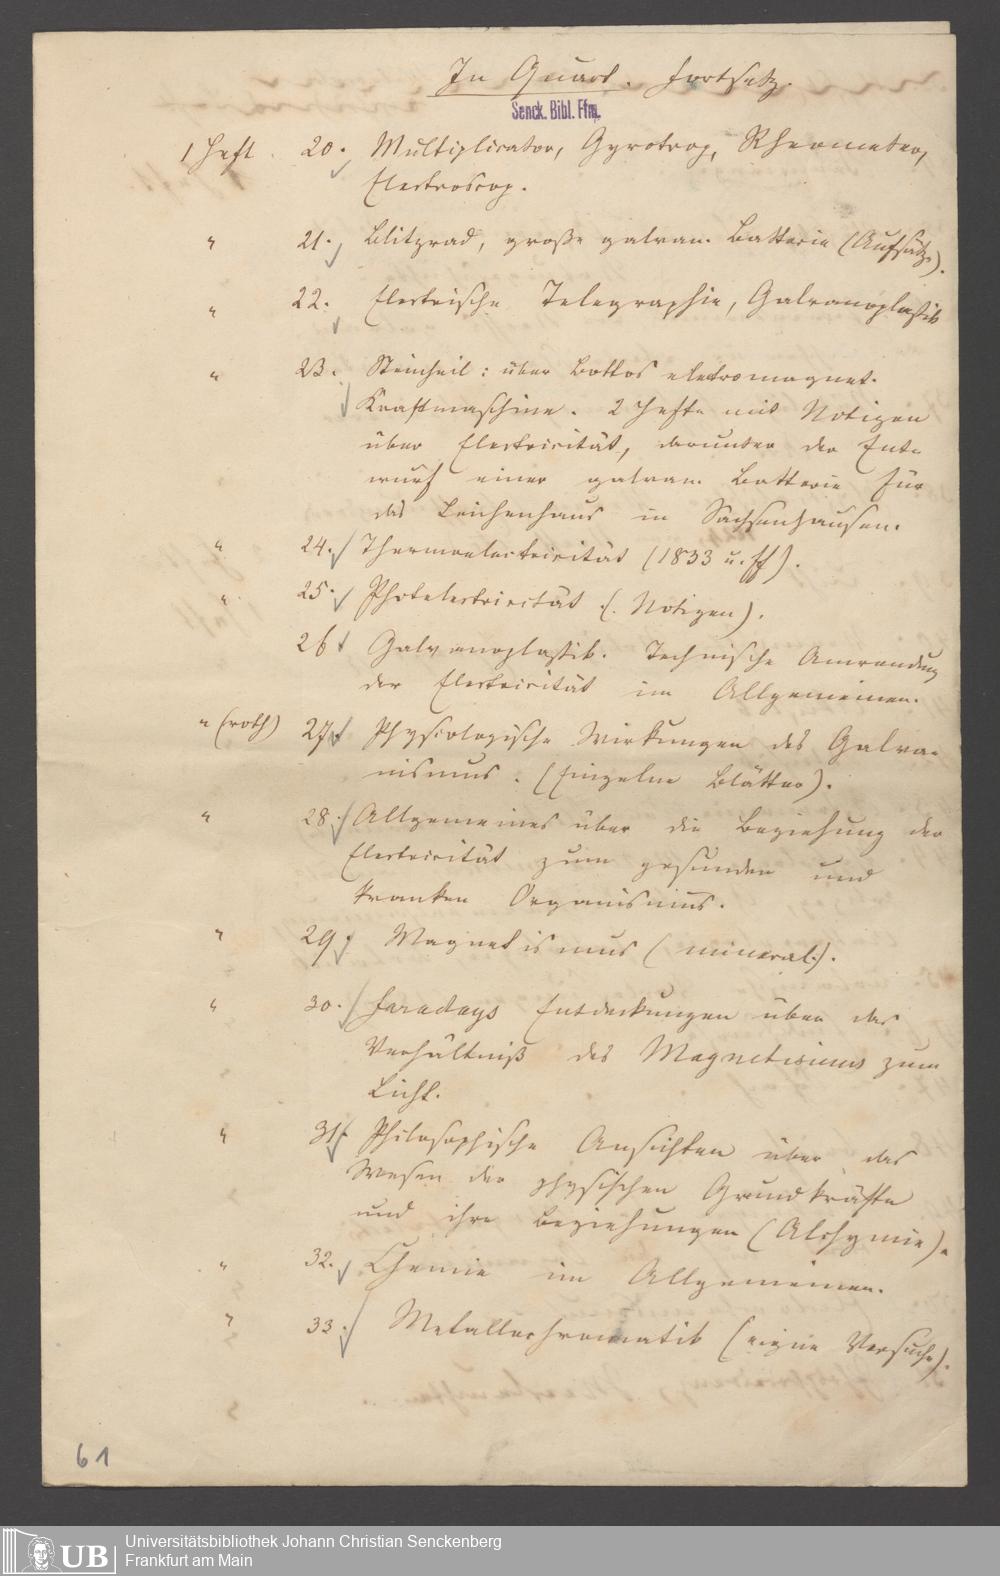 In Quart. Fortsetz.
Senck. Bibl. Ffm.
1 Heft. 20. Multiplicator, Gyrotrop, Rheometer,
Electroscop.
" 21. Blitzrad, große galvan. Batterie (Aufsätze).
" 22. Electrische Telegraphie, Galvanoplastik
" 23. Steinheil: über Bottos eletromagnet.
Kraftmaschine. 2 Hefte mit Notizen
über Electricität, darunter der Ent-
wurf einer galvan. Batterie für
das Leichenhaus in Sachsenhausen.
" 24. Thermoelectricität (1833 u. ff).
" 25. Photelectricität (Notizen).
26 Galvanoplastik. Technische Anwendung
der Electricität im Allgemeinen.
" (roth) 27. Physiologische Wirkungen des Galva-
nismus. (Einzelne Blätter).
" 28. Allgemeines über die Beziehung der
Electricität zum gesunden und
kranken Organismus.
" 29. Magnetismus (mineral.).
" 30. Faradays Entdeckungen über das
Verhältniß des Magnetismus zum
Licht.
" 31. Philosophische Ansichten über das
Wesen der physischen Grundkräfte
und ihre Beziehungen (Alchymie).
" 32. Chemie im Allgemeinen.
" 33. Metallochromatik (eigne Versuche).
61
UB
Universitätsbibliothek Johann Christian Senckenberg
Frankfurt am Main